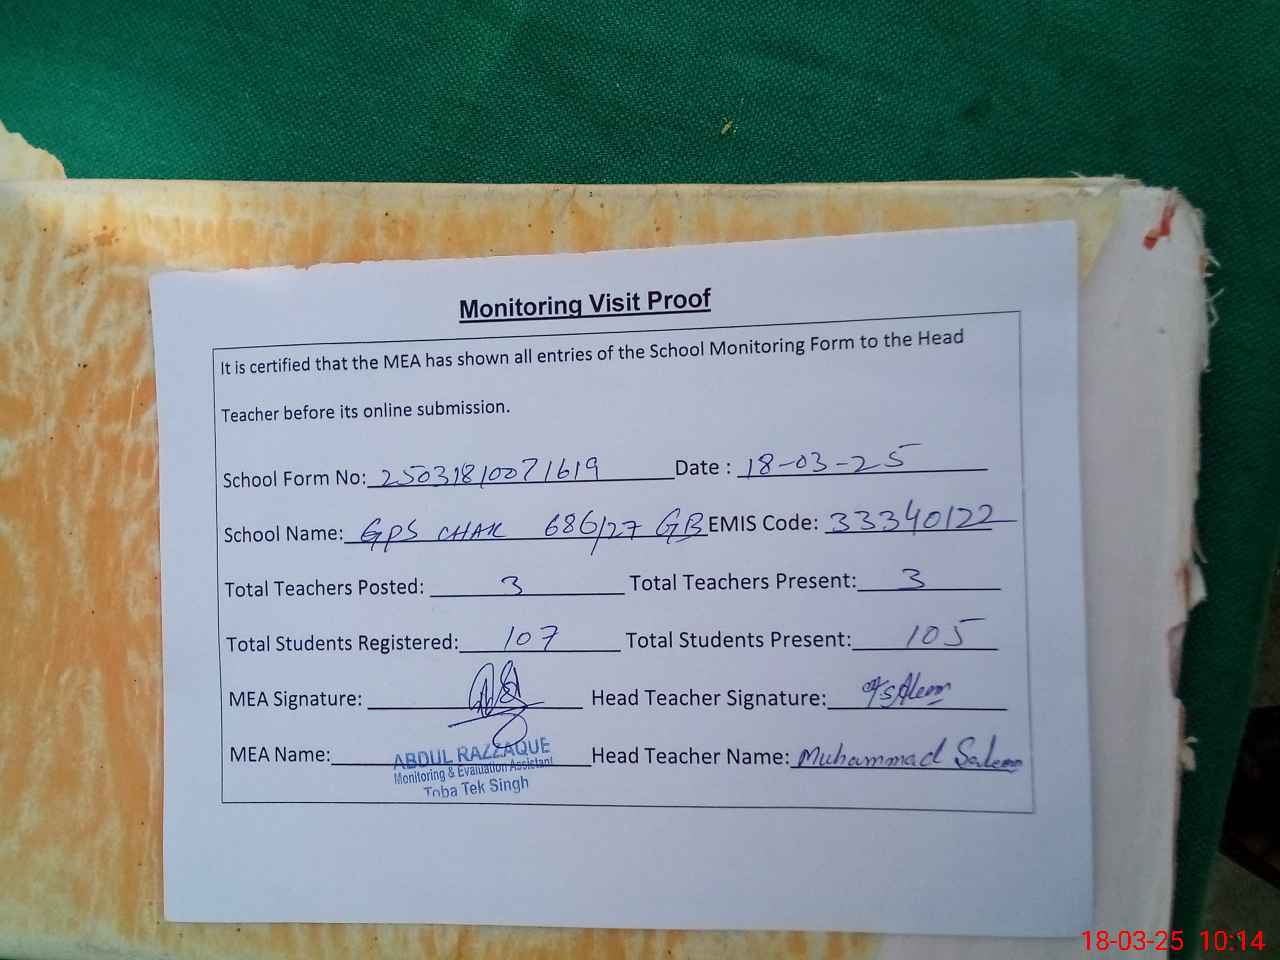 Monitoring Visit Proof
It is certified that the MEA has shown all entries of the School Monitoring Form to the Head
Teacher before its online submission.
School Form No: 25031810071619 Date : 18-03-25
School Name: GPS CHAK 686/27 GB EMIS Code: 33340122
Total Teachers Posted: 3 Total Teachers Present: 3
Total Students Registered: 107 Total Students Present: 105
MEA Signature: Head Teacher Signature:
MEA Name: ABDUL RAZZAQUE Head Teacher Name: Muhammad Saleem
Monitoring & Evaluation Assistant
Toba Tek Singh
18-03-25 10:14